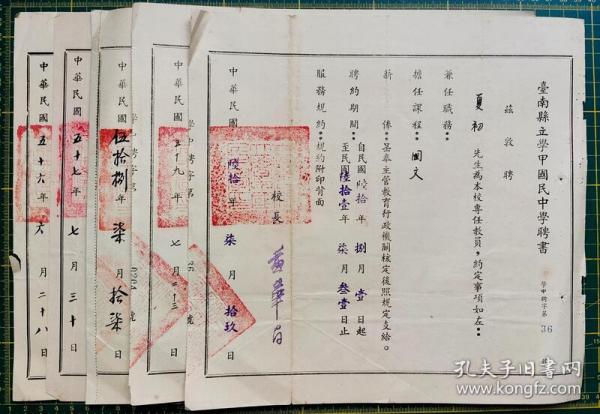 臺南縣立學甲國民中學聘書
學中聘字第 36 號
茲敦聘
夏初 先生為本校專任教員,約定事項如左:
兼任職務:
擔任課程:國文
薪俸:基奉主管教育行政機關核定後照規定支給。
聘約期間:自民國陸拾年捌月壹日起
至民國陸拾壹年柒月叁壹日止
服務規約:規約附印背面
校長
中華民國陸拾年柒月拾玖日
學中聘字第
號
中華民國五十九年七月二十三日
學中聘字第
號
中華民國伍拾捌年柒月拾柒日
中華民國五十七年七月三十日
中華民國五十六年六月二十八日
孔夫子旧书网
www.kongfz.com